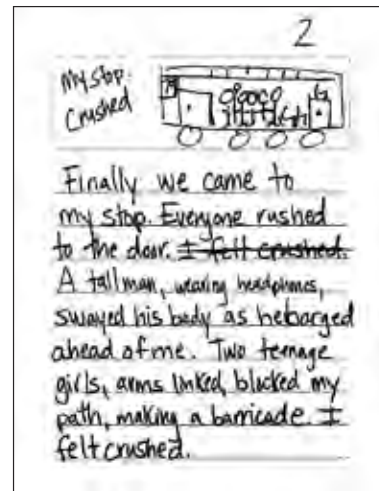 2
My stop.
Crushed
Finally we came to
my stop. Everyone rushed
to the door. I felt crushed.
A tall man, wearing headphones,
swayed his body as he barged
ahead of me. Two teenage
girls, arms linked, blocked my
path, making a barricade. I
felt crushed.